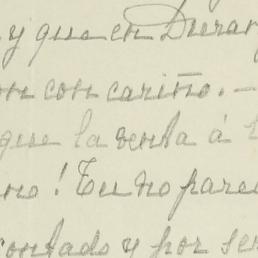 y que en Duran
on con cariño. —
que la venta á
no! Tu no pare
contado y por se